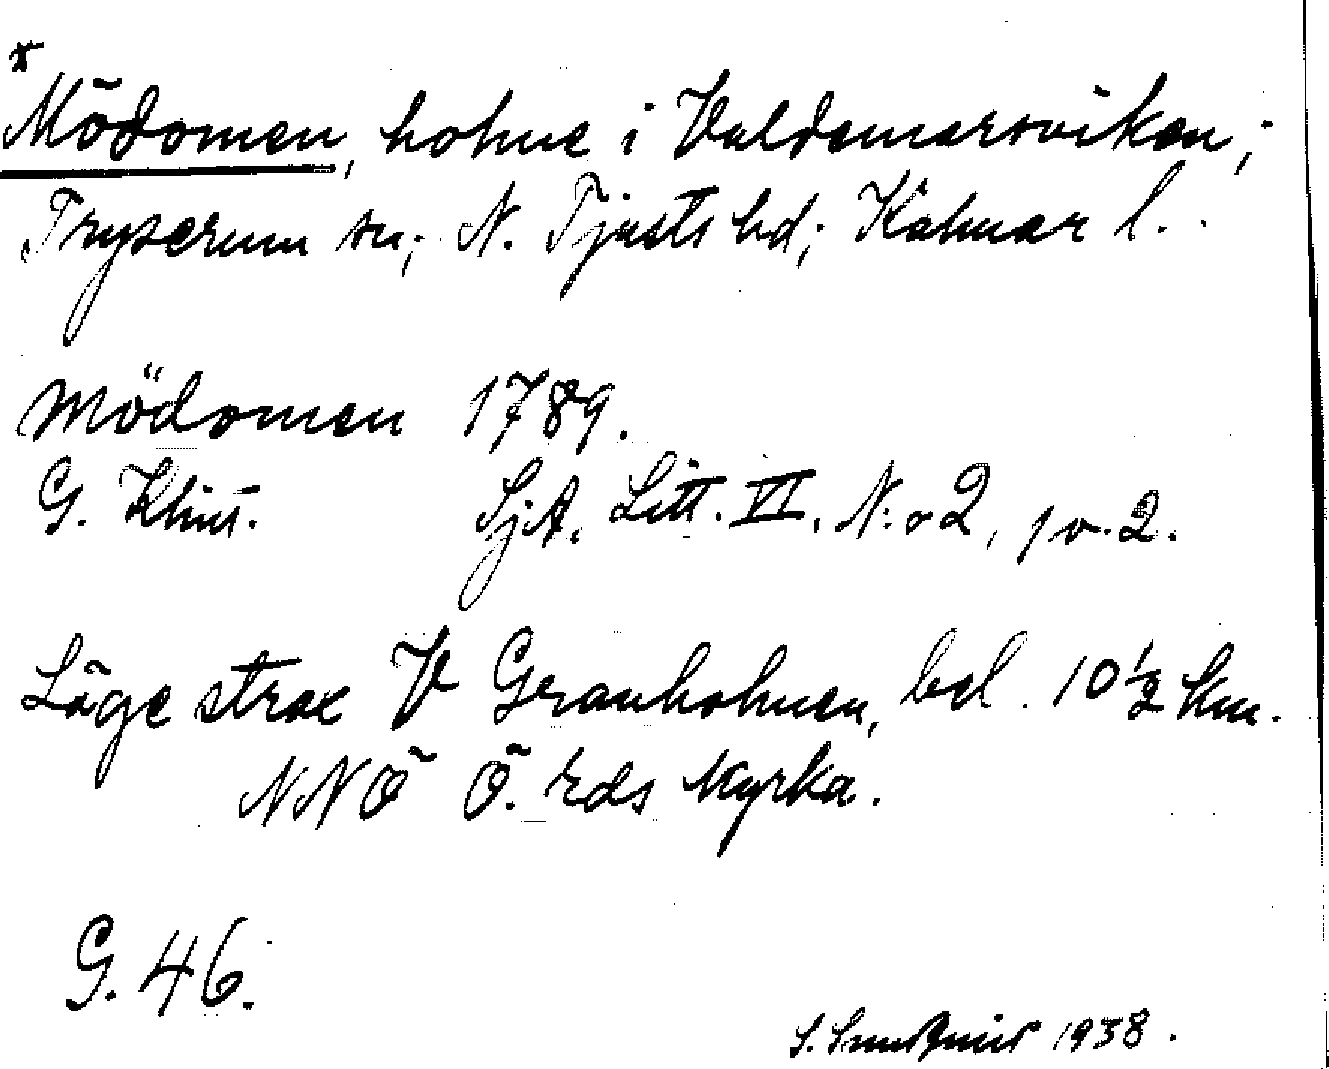 *
Mödomen, holme i Valdemarsviken,
Tryserum sn, N. Tjusts hd, Kalmar l.
Mödomen 1789.
G. Klint. SjA. Litt. VI, N:o 2, p. 2.
Läge strax V Granholmen, bel. 10 1/2 km.
NNÖ Ö. Eds kyrka.
G. 46.
S. 1938.